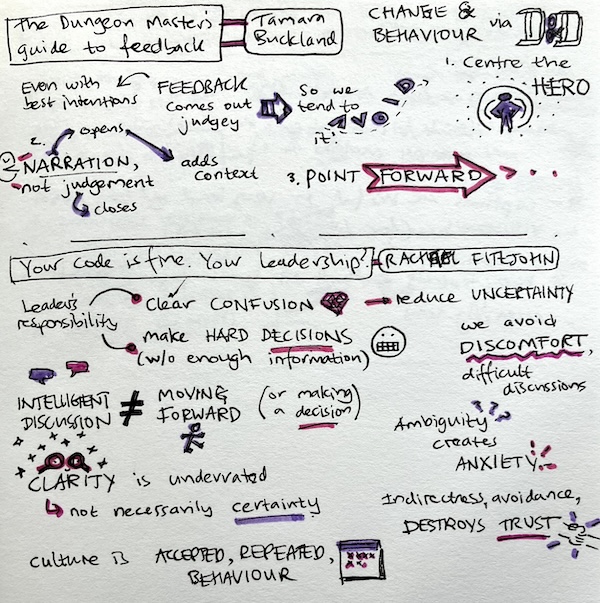 The Dungeon Master's
guide to feedback
Tamara
Buckland
CHANGE &
BEHAVIOUR via D&D
Even with
best intentions
FEEDBACK
comes out
judgey
So we
tend to
it!
1. Centre the
HERO
2. opens
NARRATION,
not judgement
closes
adds
context
3. POINT FORWARD
Your code is fine. Your Leadership?
RACHAEL FITZJOHN
Leader's
responsibility
clear CONFUSION
reduce UNCERTAINTY
make HARD DECISIONS
(w/o enough information)
we avoid
DISCOMFORT,
difficult
discussions
INTELLIGENT
DISCUSSION
≠
MOVING
FORWARD
(or making
a decision)
Ambiguity
creates
ANXIETY
CLARITY is underrated
not necessarily certainty
Indirectness, avoidance,
DESTROYS TRUST
culture is ACCEPTED, REPEATED,
BEHAVIOUR